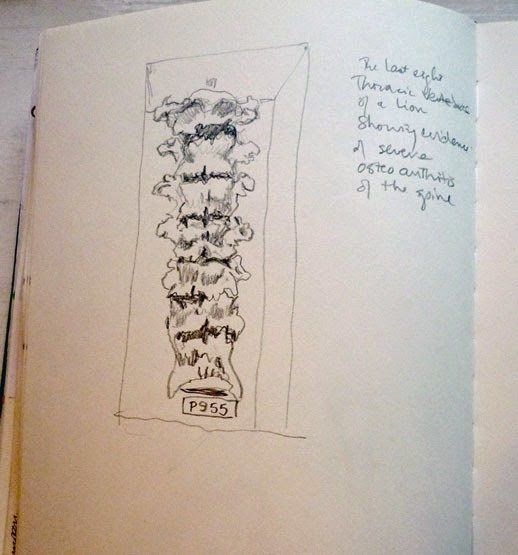 The last eight
Thoracic Vertebrae
of a Lion
Showing evidence
of severe
osteoarthritis
of the spine
P955